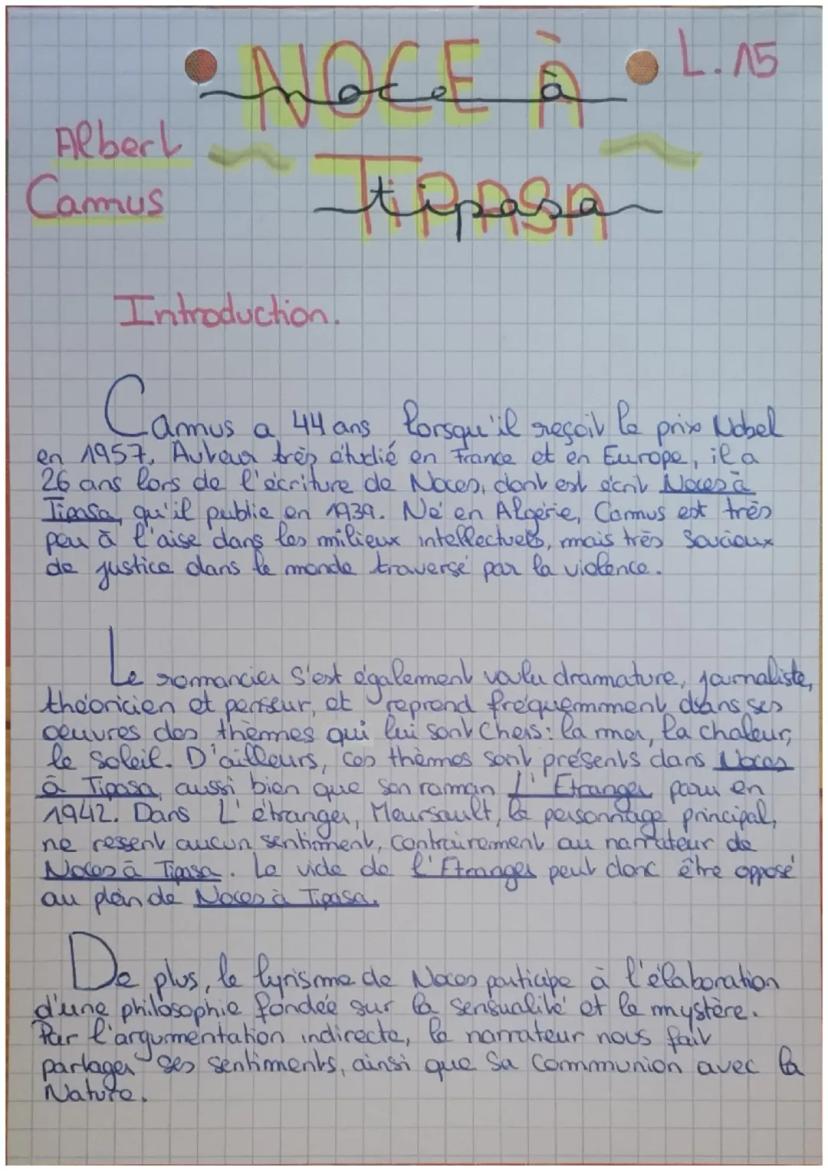 NOCE À
noce à
L.15
Albert
Camus
TIPASA
tipasa
Introduction.
Camus a 44 ans lorsqu'il reçoit le prix Nobel
en 1957. Auteur très étudié en France et en Europe, il a
26 ans lors de l'écriture de Noces, dont est écrit Noces à
Tipasa, qu'il publie en 1939. Né en Algérie, Camus est très
peu à l'aise dans les milieux intellectuels, mais très soucieux
de justice dans le monde traversé par la violence.
Le romancier s'est également voulu dramature, journaliste,
théoricien et penseur, et reprend fréquemmment dsans ses
oeuvres des thèmes qui lui sont chers : la mer, la chaleur,
le soleil. D'ailleurs, ces thèmes sont présents dans Noces
à Tipasa, aussi bien que son roman L'Etranger paru en
1942. Dans L'étranger, Meursault, le personnage principal,
ne ressent aucun sentiment, contrairement au narrateur de
Noces à Tipasa. Le vide de l'Etranger peut donc être opposé
au plein de Noces à Tipasa.
De plus, le lyrisme de Noces participe à l'élaboration
d'une philosophie fondée sur la sensualité et le mystère.
Par l'argumentation indirecte, le narrateur nous fait
partager ses sentiments, ainsi que sa communion avec la
Nature.